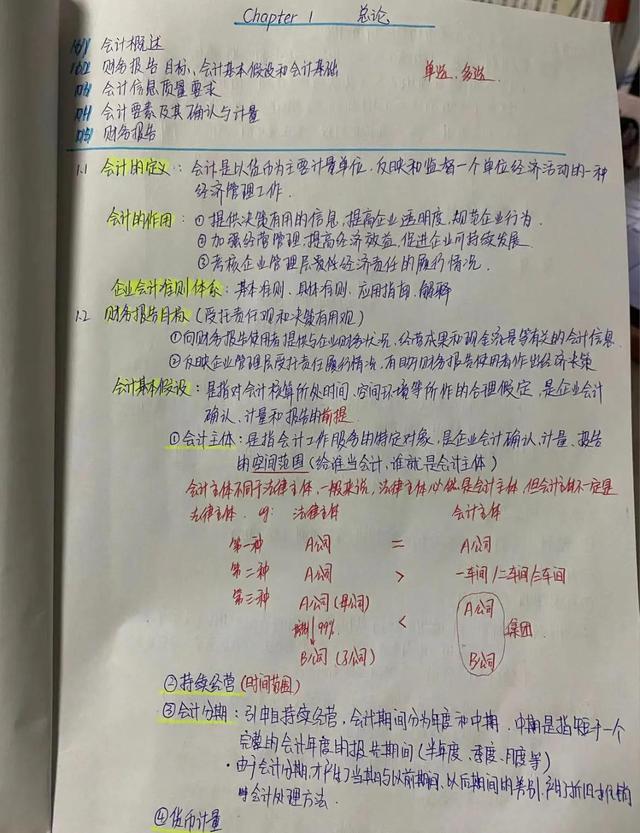 Chapter 1 总论
会计概述
财务报告目标、会计基本假设和会计基础 单选、多选
会计信息质量要求
会计要素及其确认与计量
财务报告
1.1 会计的定义：会计是以货币为主要计量单位，反映和监督一个单位经济活动的一种
经济管理工作.
会计的作用：①提供决策有用的信息，提高企业透明度，规范企业行为.
②加强经营管理，提高经济效益，促进企业可持续发展
③考核企业管理层受托经济责任的履行情况.
企业会计准则体系：基本准则、具体准则、应用指南、解释
1.2 财务报告目标（受托责任观和决策有用观）
①向财务报告使用者提供与企业财务状况、经营成果和现金流量等有关的会计信息
②反映企业管理层受托责任履行情况，有助于财务报告使用者作出经济决策
会计基本假设：是指对会计核算所处时间、空间环境等所作的合理假定，是企业会计
确认、计量和报告的前提.
①会计主体：是指会计工作服务的特定对象，是企业会计确认、计量、报告
的空间范围（给谁当会计，谁就是会计主体）
会计主体不同于法律主体，一般来说，法律主体必然是会计主体，但会计主体不一定是
法律主体. eg: 法律主体 会计主体
第一种 A公司 = A公司
第二种 A公司 > 一车间/二车间/三车间
第三种 A公司（母公司） < A公司
99% 集团.
B公司（子公司） B公司
②持续经营（时间范围）
③会计分期：引申自持续经营，会计期间分为年度和中期. 中期是指短于一个
完整的会计年度的报告期间（半年度、季度、月度等）
·由于会计分期，才产生了当期与以前期间、以后期间的差别，产生了折旧、摊销
等会计处理方法.
④货币计量